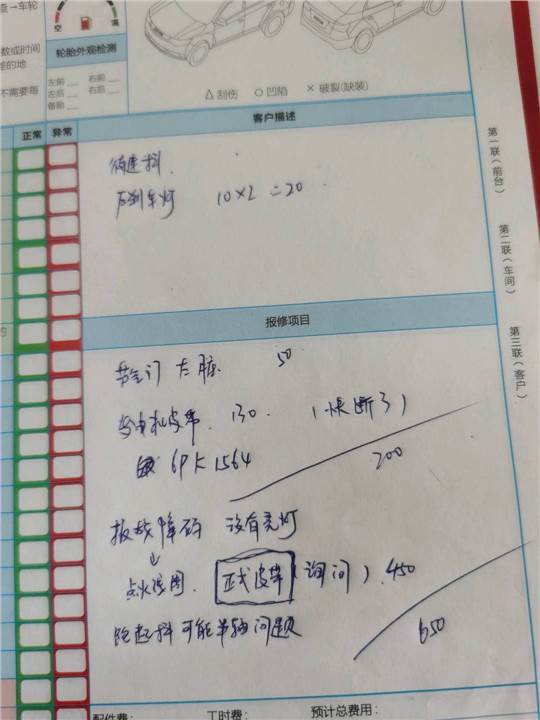 查→车轮
空 满
数或时间
轮胎外观检测
差的地
左前 右前
不需要每
左后 右后
备胎
△刮伤 ○凹陷 ×破裂(缺装)
正常 异常
客户描述
第一联(前台)
第二联(车间)
第三联(客户)
抖.
后刹车灯 10×2 =20
报修项目
节气门 太脏 50
发电机皮带. 130. (快断了)
6PK1564
200
报故障码 没有亮灯
↓
点火线圈. 正式皮带 (询问). 450
跑起抖可能半轴问题
650
配件费: 工时费: 预计总费用: